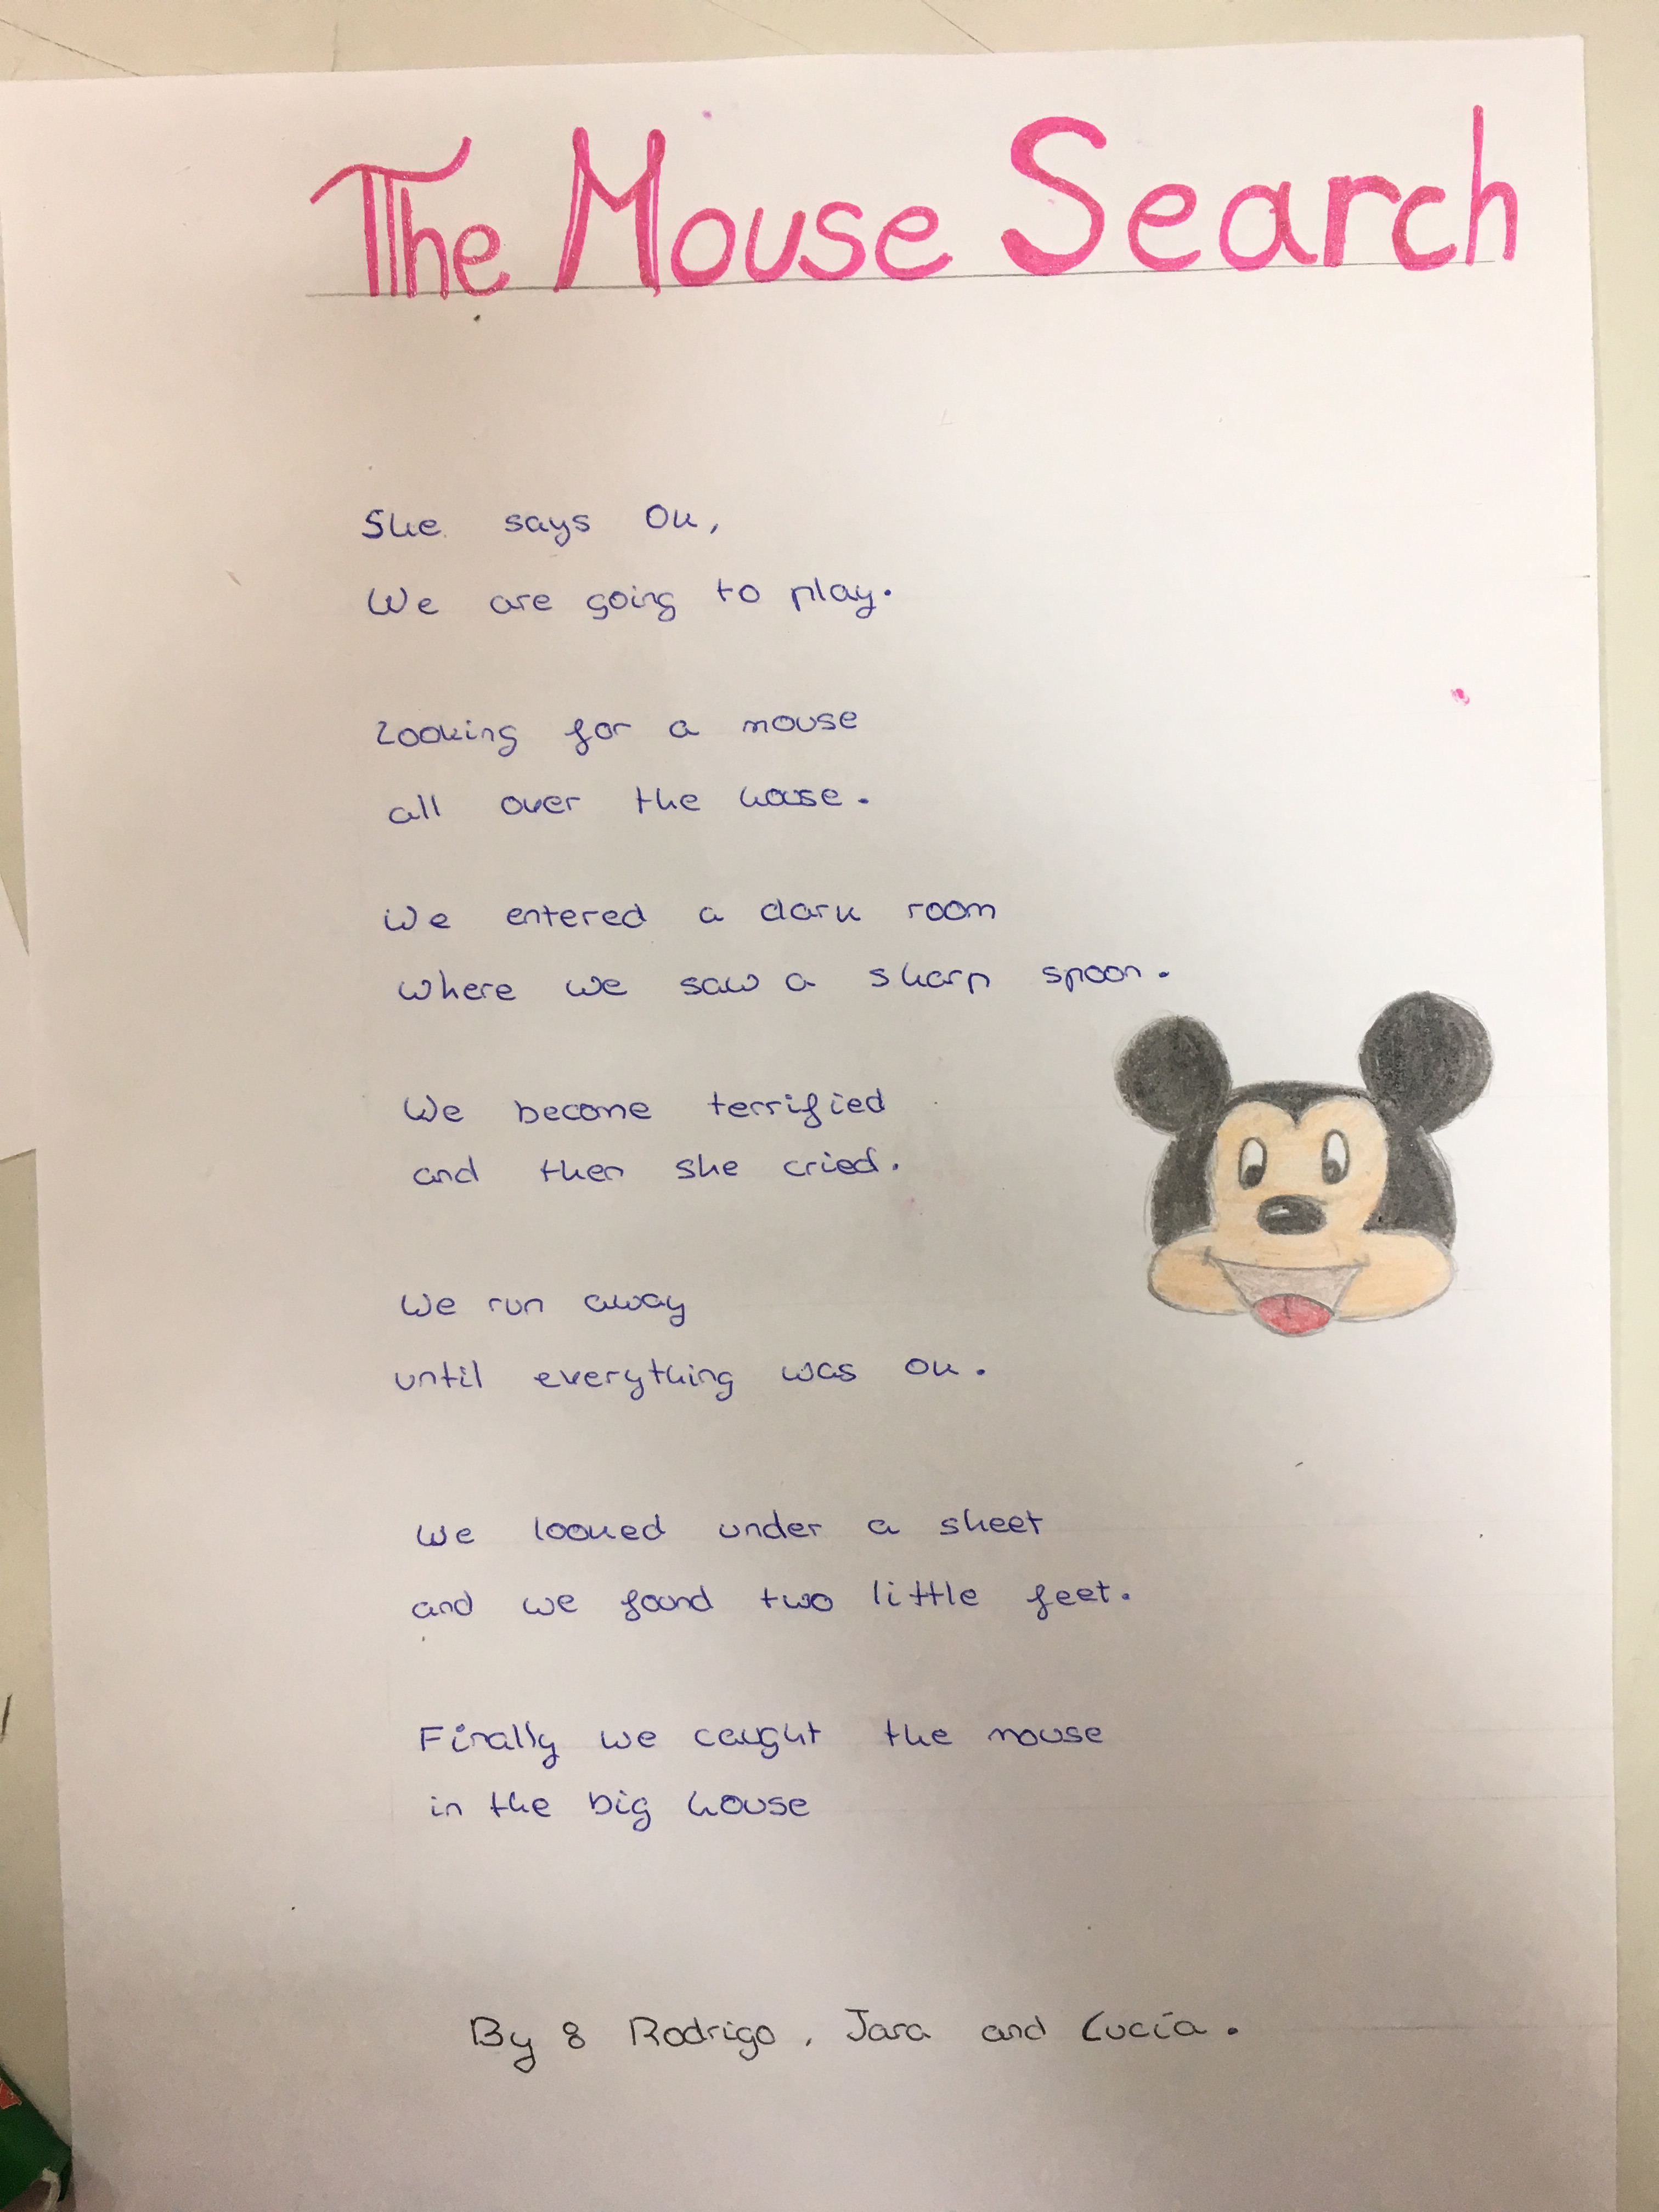 The Mouse Search
She says Ok,
We are going to play.
Looking for a mouse
all over the house.
We entered a dark room
where we saw a sharp spoon.
We become terrified
and then she cried.
We run away
until everything was ok.
We looked under a sheet
and we found two little feet.
Finally we caught the mouse
in the big house
By: Rodrigo, Jara and Lucía.